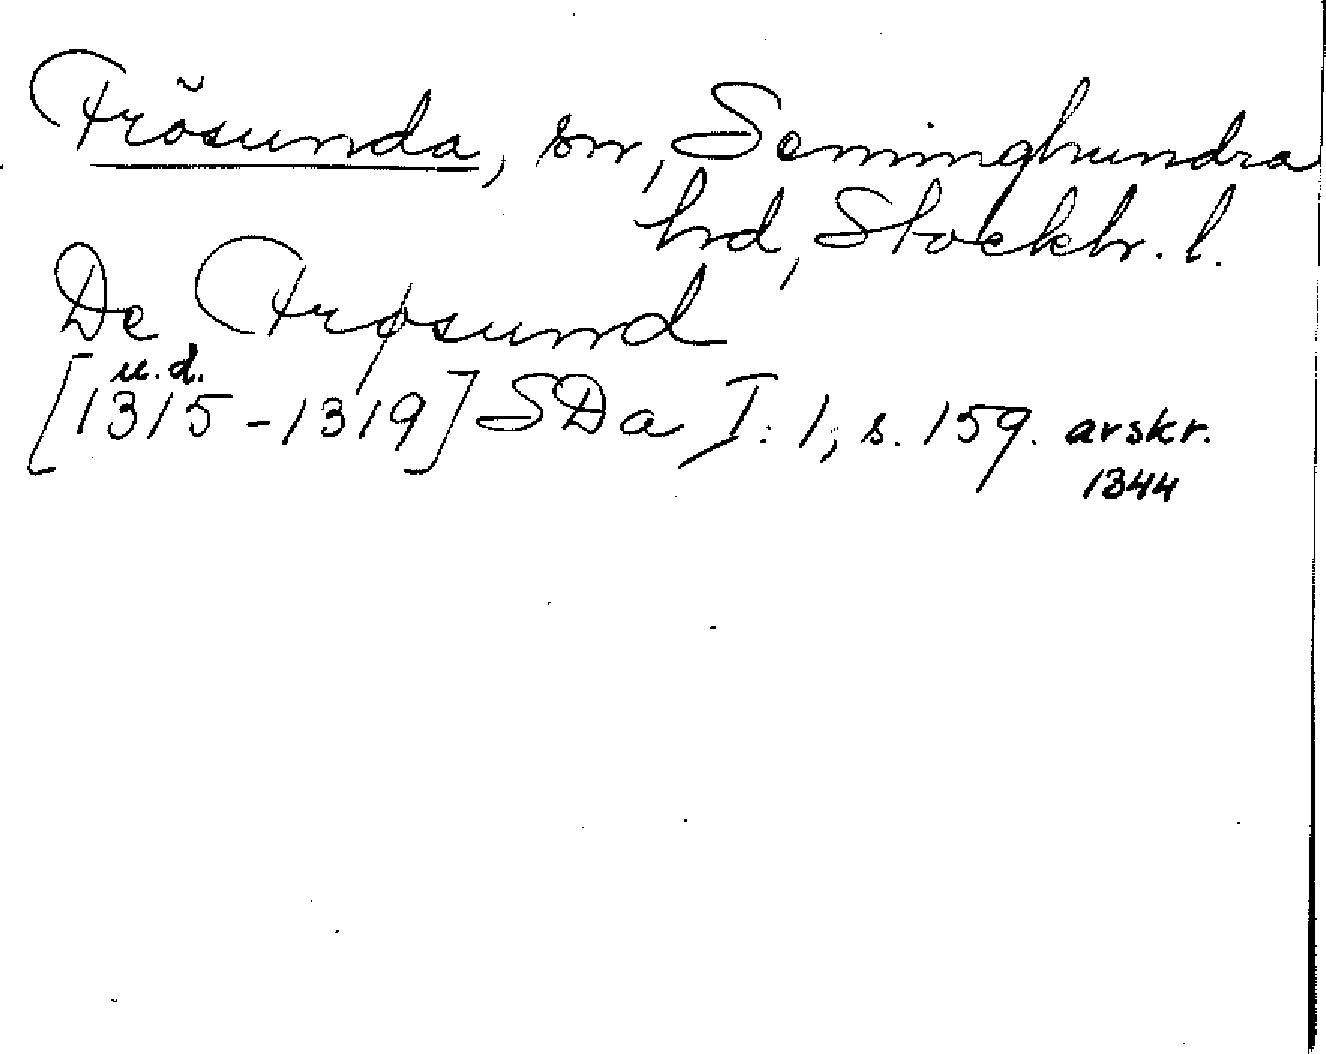 Frösunda, sn, Seminghundra
hd, Stockh. l.
De Frøsund
u.d.
[1315-1319] SDa I: 1, s. 159. avskr.
1344